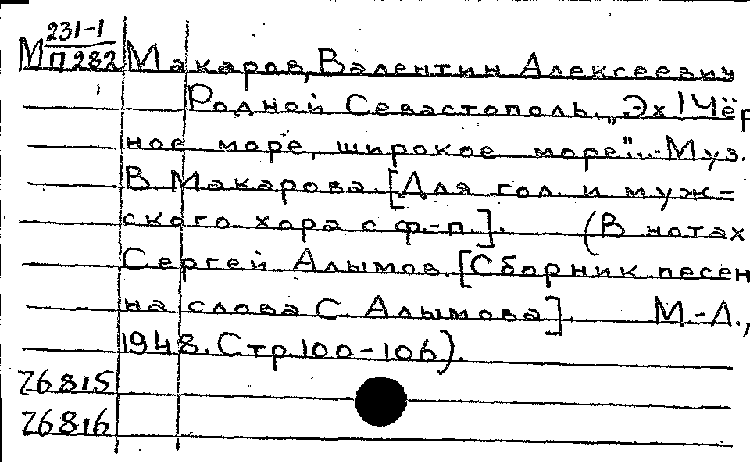 М 231-1
П 282
Макаров, Валентин Алексеевич
Родной Севастополь. „Эх! Чёр
ное море, широкое море"... Муз.
В Макарова. [Для гол. и муж-
ского хора с ф.-п.]. (В нотах
Сергей Алымов. [Сборник песен
на слова С. Алымова]. М.-Л.,
1948. Стр 100-106).
26815
26816